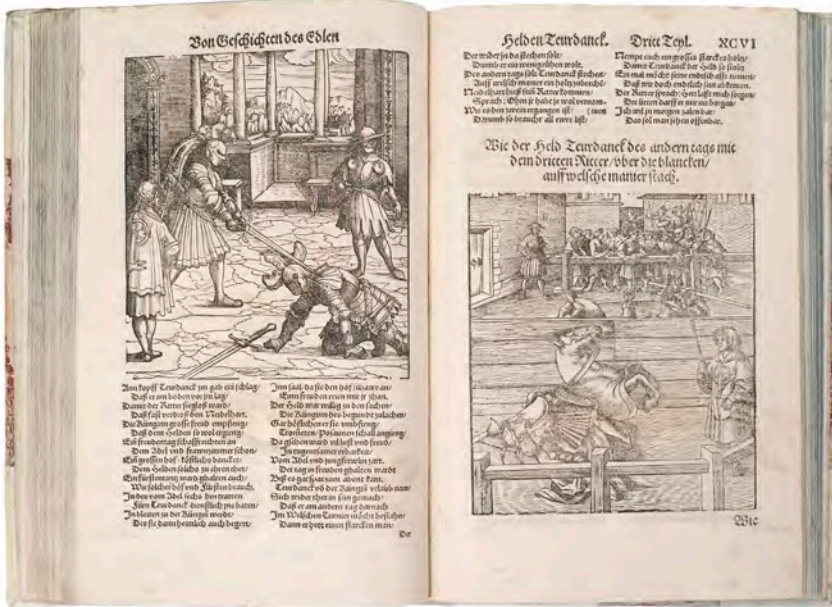 Von Geschichten des Edlen
Am kopff Teurdanck jm gab ein schlag/
Daß er am boden vor jm lag/
Damit der Ritter sigloß ward/
Daß fast verdroß den Neidelhart.
Die Küngin grosse freud empfieng/
Daß dem Helden so wol ergieng/
Ein freudentag schafft richten an
Dem Adel vnd frawenzimmer schon/
Ein grossen hof/ köstlichs bancket/
Dem Helden solchs zu ehren thet/
Ein Fürstentantz ward ghalten auch/
Wie solcher höf vnd Fürsten brauch.
In des vom Adel sechs hin tratten
Fürn Teurdanck/ dienstlich jne baten/
In bleiten zu der Küngin werdt/
Des sie dann heimlich auch begert/
Inn saal/ da sie den hof schawt an/
Einn freuden reien mit jr zhan.
Der Held war willig zu den sachen/
Die Küngin des begundt zulachen/
Gar höflichen er sie vmbfieng/
Trometen/ Posaunen schall angieng/
Da gsehen ward vil lust vnd freud/
In tugentsamer erbarkeit/
Vom Adel vnd jungfrewlin zart.
Der tag in freuden ghalten wardt
Biß es gar spat zum abent kam.
Teurdanck võ der Küngin vrlaub nam/
Sich wider thet in sein gemach/
Daß er am andern tag darnach
Im Welschen Turnier möcht bestahn/
Dann er hett einen starcken man/
Der
Helden Teurdanck. Dritt Teyl. XCVI
Der wider jn da stechen solt/
Drumb er ein wenig rühen wolt.
Des andern tags solt Teurdanck stechen/
Auff welsch manier ein holtz zubrechẽ/
Neidelhart hieß sein Ritter kommen/
Sprach: Ohm jr habt je wol vernom-
Wie es den zween ergangen ist/ (men
Darumb so braucht all ewre list/
Nempt euch ein grosses starckes holtz/
Damit Teurdanck der Held so stoltz
Ein mal möcht seine endtschafft nemen/
Daß wir doch endtlich sein abkemen.
Der Ritter sprach: Herr laßt mich sorgen/
Der bitten darff er mir nit borgen/
Ich wil jn morgen zalen bar/
Das sol man sehen offenbar.
Wie der Held Teurdanck des andern tags mit
dem dritten Ritter/ vber die blancken/
auff welsche manier stach.
Wie